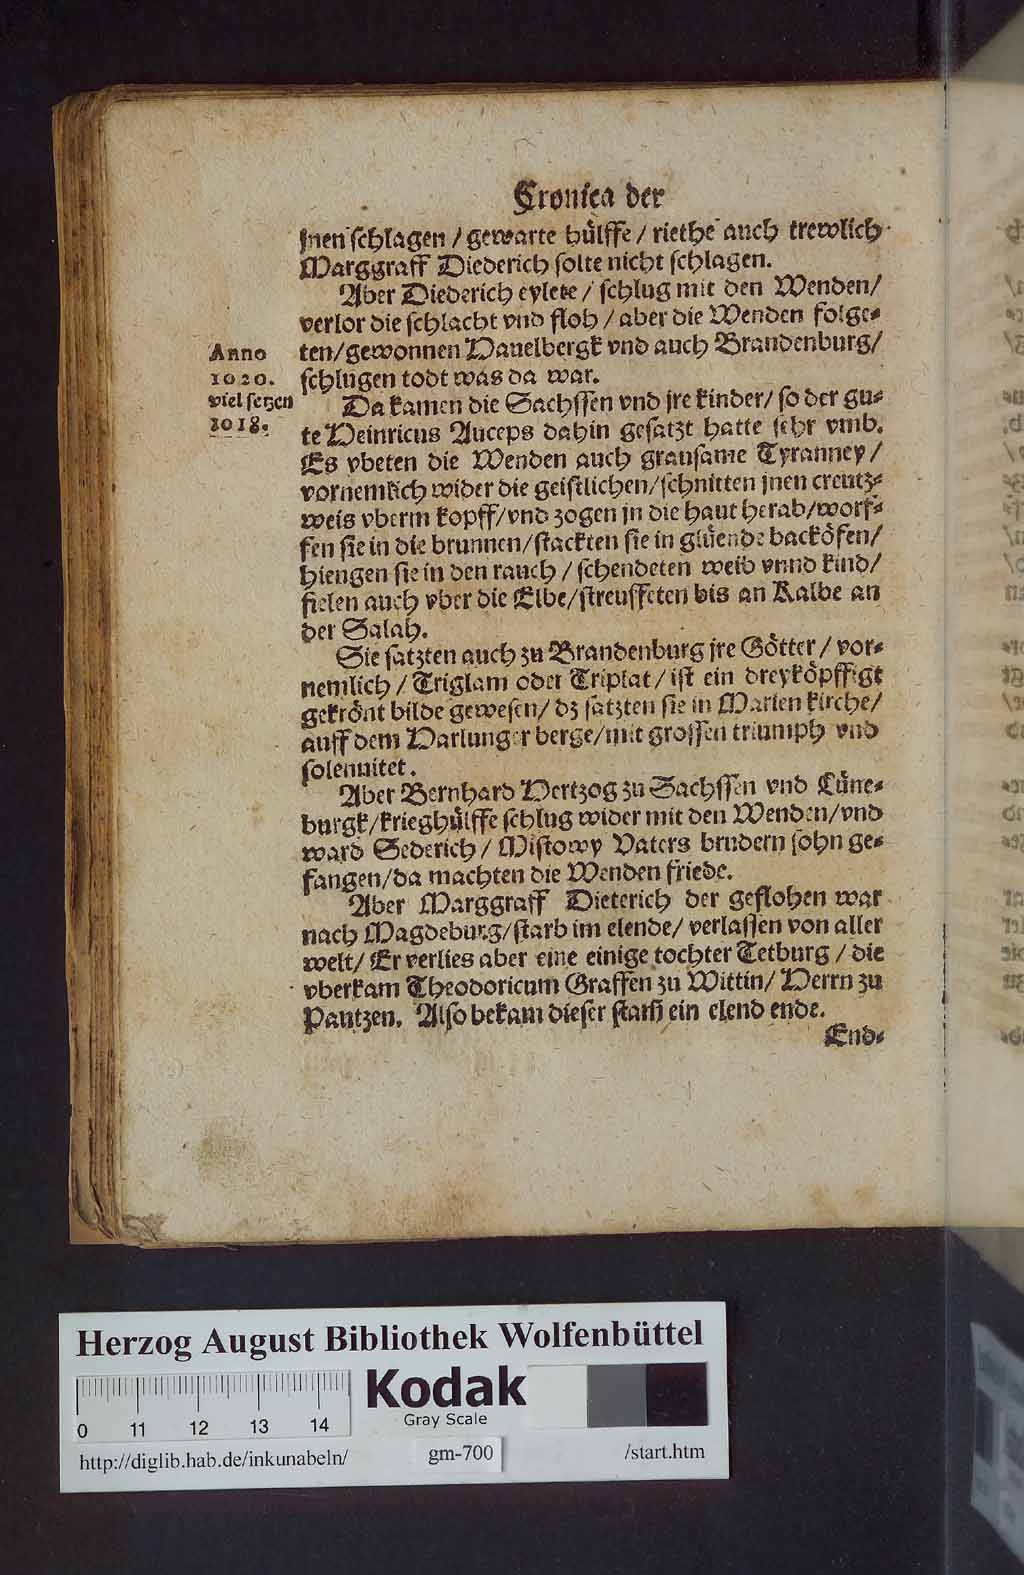 Cronica der
jnen schlagen / gewarte hülffe / riethe auch trewlich
Marggraff Diederich solte nicht schlagen.
Aber Diederich eylete / schlug mit den Wenden/
verlor die schlacht vnd floh / aber die Wenden folge-
Anno
ten/gewonnen Hauelbergk vnd auch Brandenburg/
1020.
schlugen todt was da war.
viel setzen
Da kamen die Sachssen vnd jre kinder/ so der gu-
1018.
te Heinricus Auceps dahin gesatzt hatte sehr vmb.
Es vbeten die Wenden auch grausame Tyranney /
vornemlich wider die geistlichen/schnitten jnen creutz-
weis vberm kopff/vnd zogen jn die haut herab/worf-
fen sie in die brunnen/stackten sie in glüende backöfen/
hiengen sie in den rauch / schendeten weib vnnd kind/
fielen auch vber die Elbe/streuffeten bis an Kalbe an
der Salah.
Sie satzten auch zu Brandenburg jre Götter / vor-
nemlich / Triglam oder Triplat / ist ein dreyköpffigt
gekrönt bilde gewesen/ dz satzten sie in Marien kirche/
auff dem Harlunger berge/mit grossen triumph vnd
solennitet.
Aber Bernhard Hertzog zu Sachssen vnd Lüne-
burgk/krieghülffe schlug wider mit den Wenden/vnd
ward Sederich / Mistowy Vaters brudern sohn ge-
fangen/da machten die Wenden friede.
Aber Marggraff Dieterich der geflohen war
nach Magdeburg/starb im elende/ verlassen von aller
welt/ Er verlies aber eine einige tochter Tetburg / die
vberkam Theodoricum Graffen zu Wittin/ Herrn zu
Pautzen. Also bekam dieser stam ein elend ende.
End-
Herzog August Bibliothek Wolfenbüttel
0 11 12 13 14
Kodak
Gray Scale
http://diglib.hab.de/inkunabeln/ gm-700 /start.htm